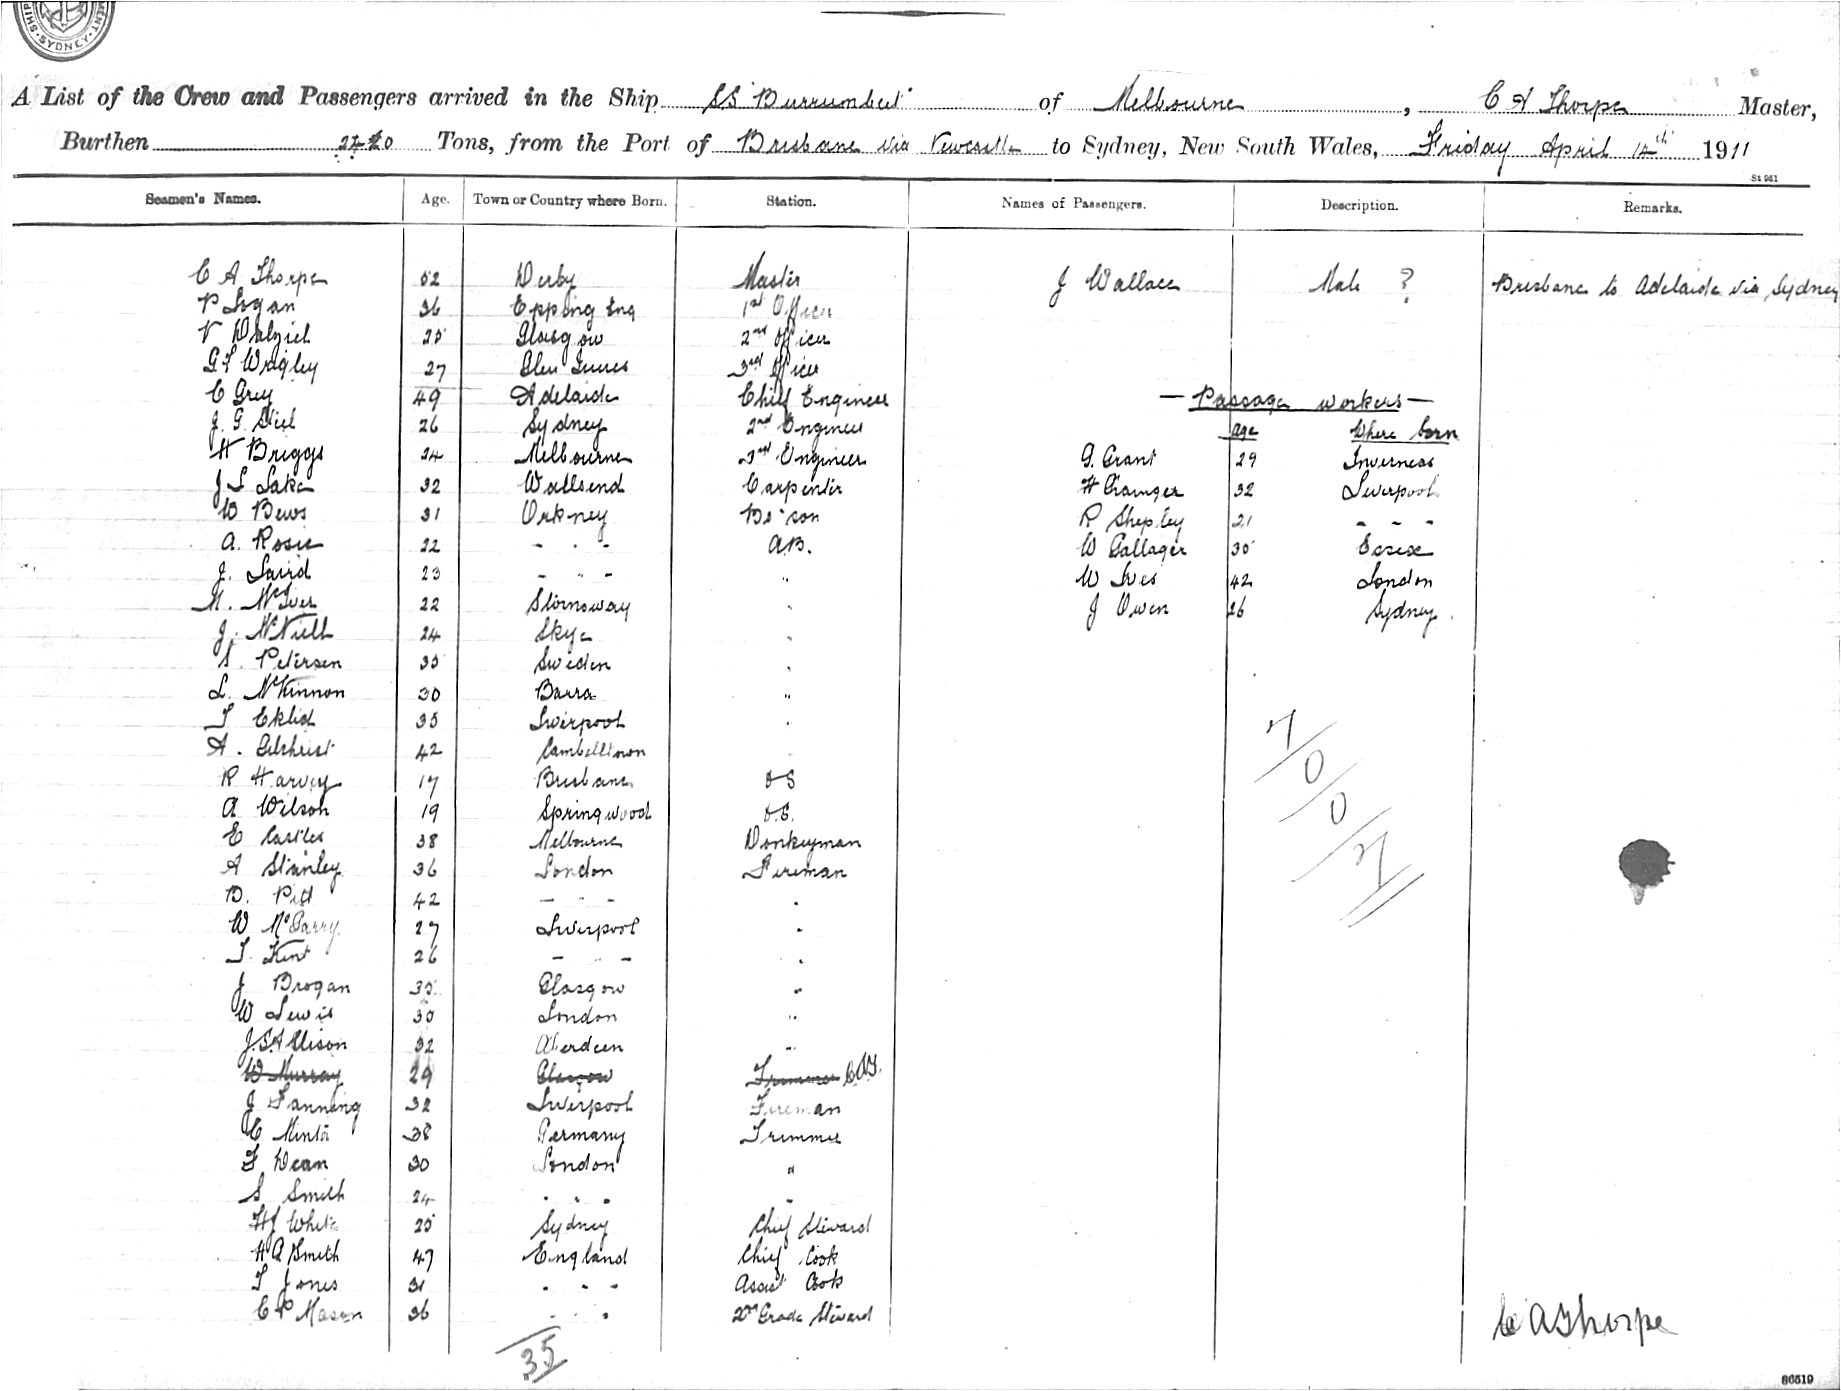 SYDNEY
A List of the Crew and Passengers arrived in the Ship SS Burrumbeet of Melbourne, C A Thorpe Master,
Burthen Tons, from the Port of Brisbane via Newcastle to Sydney, New South Wales, Friday April 14th 1911
St 961
Seamen's Names. Age. Town or Country where Born. Station. Names of Passengers. Description. Remarks.
C A Thorpe 52 Derby Master J Wallace Male ? Brisbane to Adelaide via Sydney
P Logan 36 Epping Eng 1st Officer
V Dalziel 25 Glasgow 2nd Officer
G S Wrigley 27 Glen Innes 3rd Officer
C Grey 49 Adelaide Chief Engineer — Passage workers —
J. G. Stiel 26 Sydney 2nd Engineer age Where born
H Briggs 24 Melbourne 3rd Engineer G. Grant 29 Inverness
J S Lake 32 Wallsend Carpenter H Grainger 32 Liverpool
W Bews 31 Orkney Bo'son R Shepley 21 - - -
A. Rosie 22 - - - A.B. W Gallager 35 Essex
J. Laird 23 - " - " W Ives 42 London
M. McIver 22 Stornoway " J Owen 26 Sydney.
J. McNeill 24 Skye "
S. Petersen 35 Sweden "
L. McKinnon 30 Barra "
T Eklid 35 Liverpool "
A. Gilchrist 42 Cambelltown
R Harvey 17 Brisbane OS
A Wilson 19 Springwood O.S.
E Castles 38 Melbourne Donkeyman
A Stanley 36 London Fireman
D. Pitt 42 - - - "
W McGarry 27 Liverpool "
T. Kent 26 - " - "
J Brogan 35 Glasgow "
W Lewis 30 London "
J. S. Allison 32 Aberdeen "
W Murray 29 Glasgow Trimmer C.A.T.
J Fanning 32 Liverpool Fireman
C Minto 38 Germany Trimmer
F Dean 30 London "
S Smith 24 - - - "
H J White 25 Sydney Chief Steward
H A Smith 47 England Chief Cook
T Jones 31 - - - Assist Cook
C P Mason 36 - - - 2nd Grade Steward
35
C A Thorpe
86519